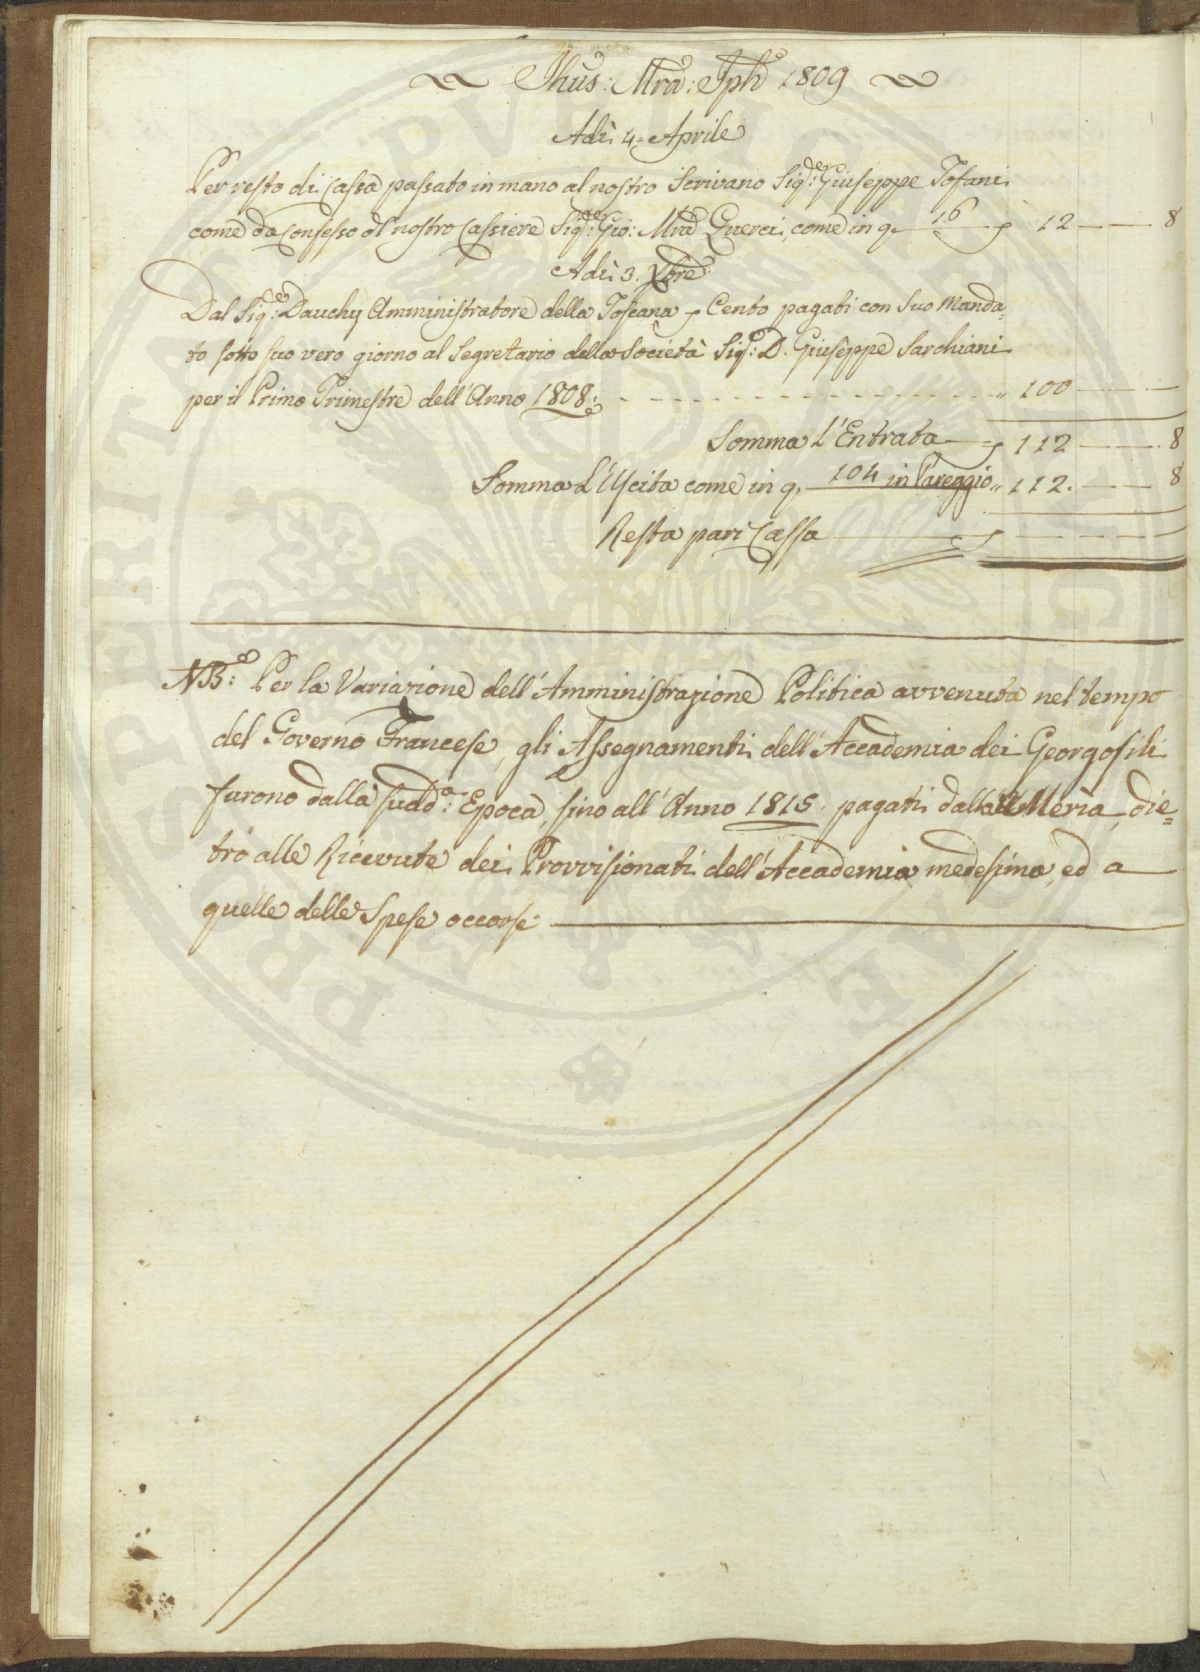 Jhus: Mra: Jph 1809
Adì 4. Aprile
Per resto di Cassa passato in mano al nostro Scrivano Sigre: Giuseppe Tofani
come da Confesso dl nostro Cassiere Sigre: Gio: Mra Querci, come in q. 16 12 8
Adì 3. Xbre
Dal Sigre: Dauchy Amministratore della Toscana p Cento pagati con suo Manda=
to sotto suo vero giorno al Segretario della Società Sigre: D. Giuseppe Sarchiani
per il Primo Trimestre dell'Anno 1808: " 100
Somma l'Entrata 112 8
Somma l'Uscita come in q. 104 in Pareggio " 112. 8
Resta pari Cassa
NB: Per la Variazione dell'Amministrazione Politica avvenuta nel tempo
del Governo Francese, gli Assegnamenti dell'Accademia dei Georgofili
furono dalla sudda: Epoca, fino all'Anno 1815. pagati dalla Meria, die=
tro alle Ricevute dei Provvisionati dell'Accademia medesima, ed a
quelle delle Spese occorse
PRO PUBLICAE